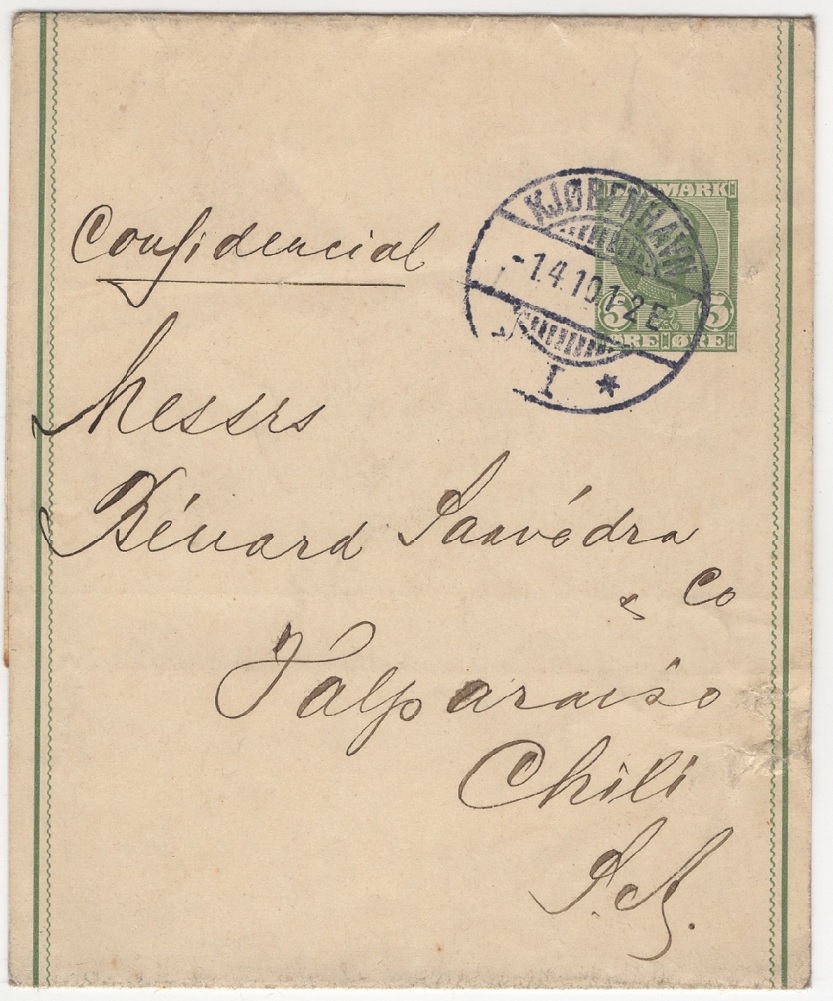 DANMARK
KJØBENHAVN
-1.4.10 1-2 E
I *
5 5
ØRE ØRE
Confidencial
Messrs
Bénard Saavédra
& Co
Valparaiso
Chili
S.A.